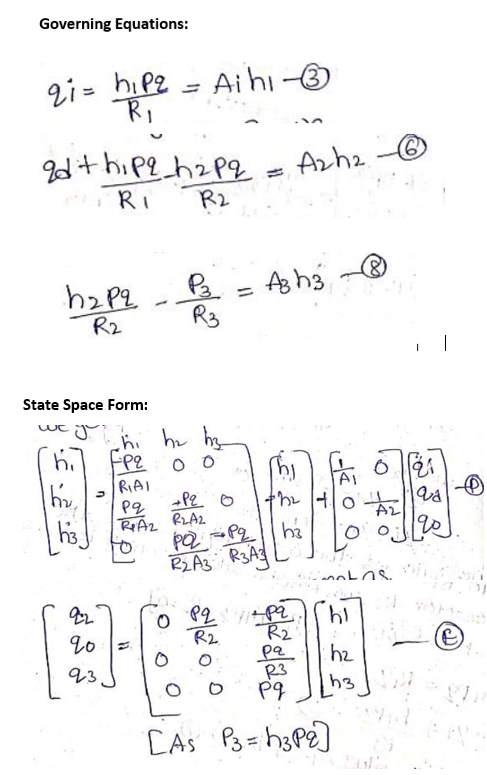 Governing Equations:
qi = h1Pg/R1 = A1h1 — ③
qd + h1Pg/R1 - h2Pg/R2 = A2h2 — ⑥
h2Pg/R2 - P3/R3 = A3h3 — ⑧
State Space Form:
h1 h2 h3
[ḣ1 ḣ2 ḣ3] = [-Pg/R1A1 0 0; Pg/R1A2 -Pg/R2A2 0; 0 Pg/R2A3 -Pg/R3A3] [h1 h2 h3] + [1/A1 0; 0 1/A2; 0 0] [qi qd q0] — Ⓓ
[q2 q0 q3] = [0 Pg/R2 -Pg/R2; 0 0 Pg/R3; 0 0 Pg] [h1 h2 h3] — Ⓔ
[As P3 = h3Pg]